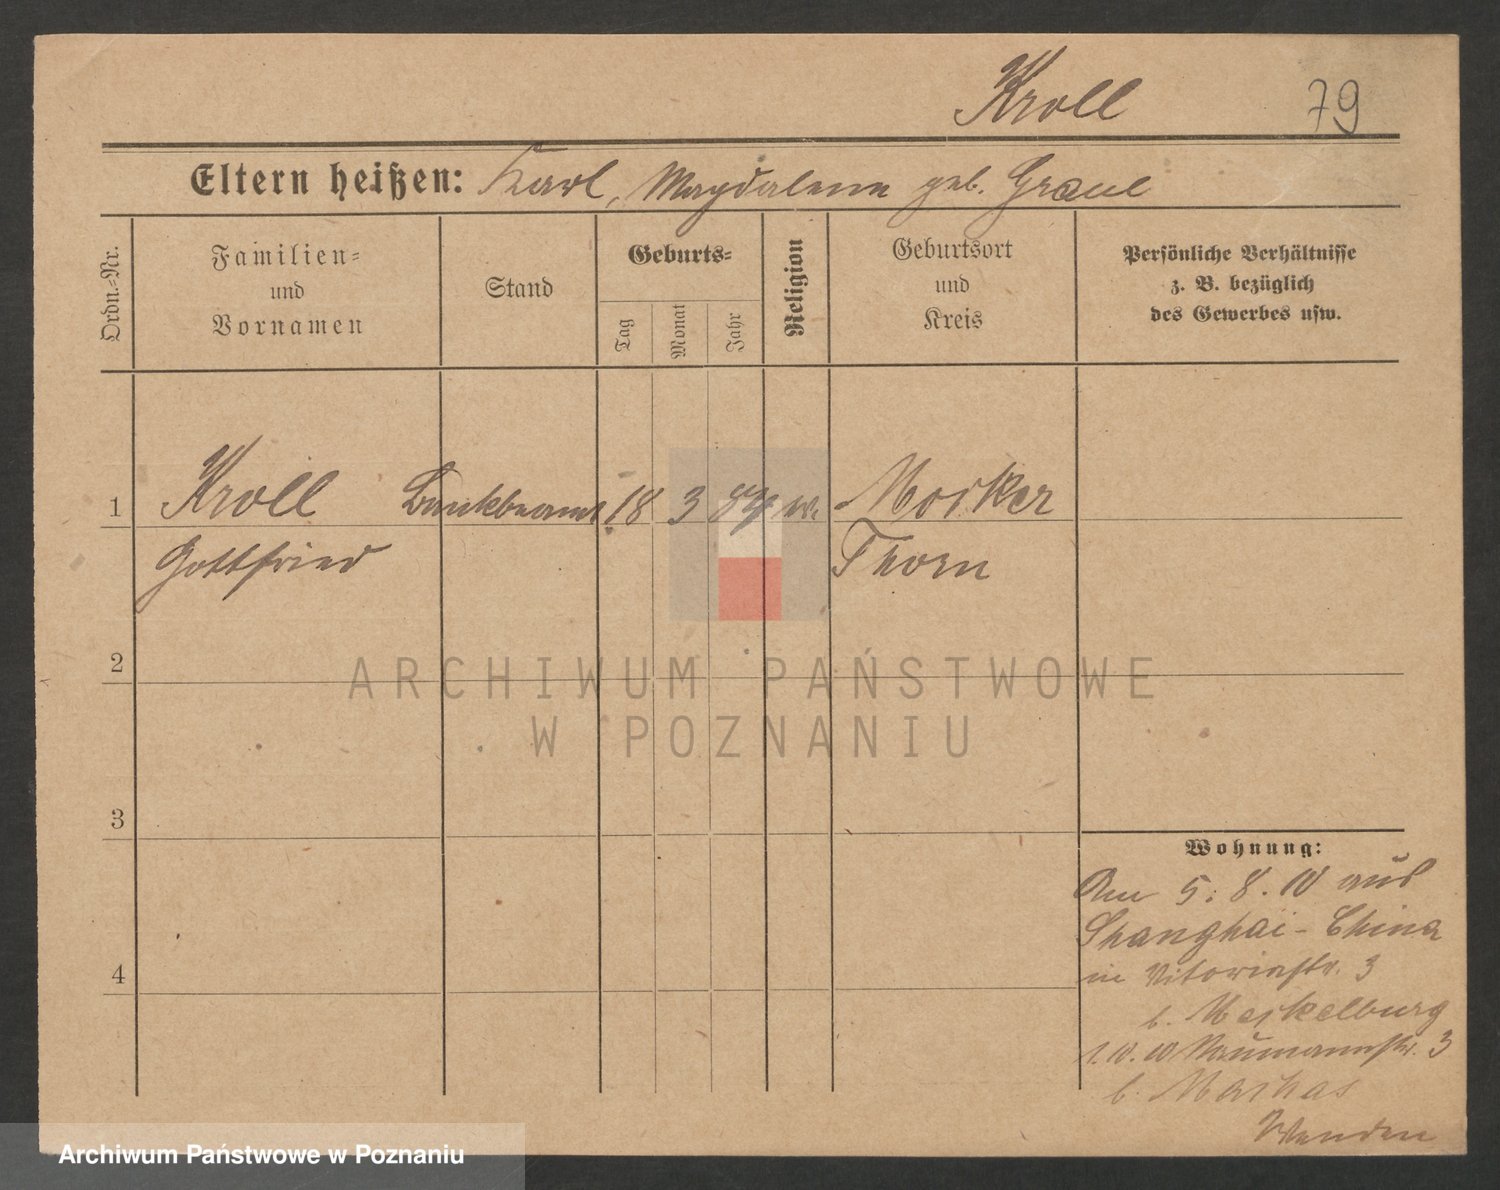 Kroll
79
Eltern heißen: Karl, Magdalena geb. Graul
Ordn.-Nr.
Familien-
und
Vornamen
Stand
Geburts-
Tag
Monat
Jahr
Religion
Geburtsort
und
Kreis
Persönliche Verhältnisse
z. B. bezüglich
des Gewerbes usw.
1
Kroll
Bankbeamt
18
3
84
Mocker
Gottfried
Thorn
2
3
4
ARCHIWUM PAŃSTWOWE
W POZNANIU
Wohnung:
Am 5. 8. 10 aus
Shanghai - China
in Vitoriastr. 3
b. Meckelburg
1. 10. 10 Naumannstr. 3
b.
Wenden
Archiwum Państwowe w Poznaniu